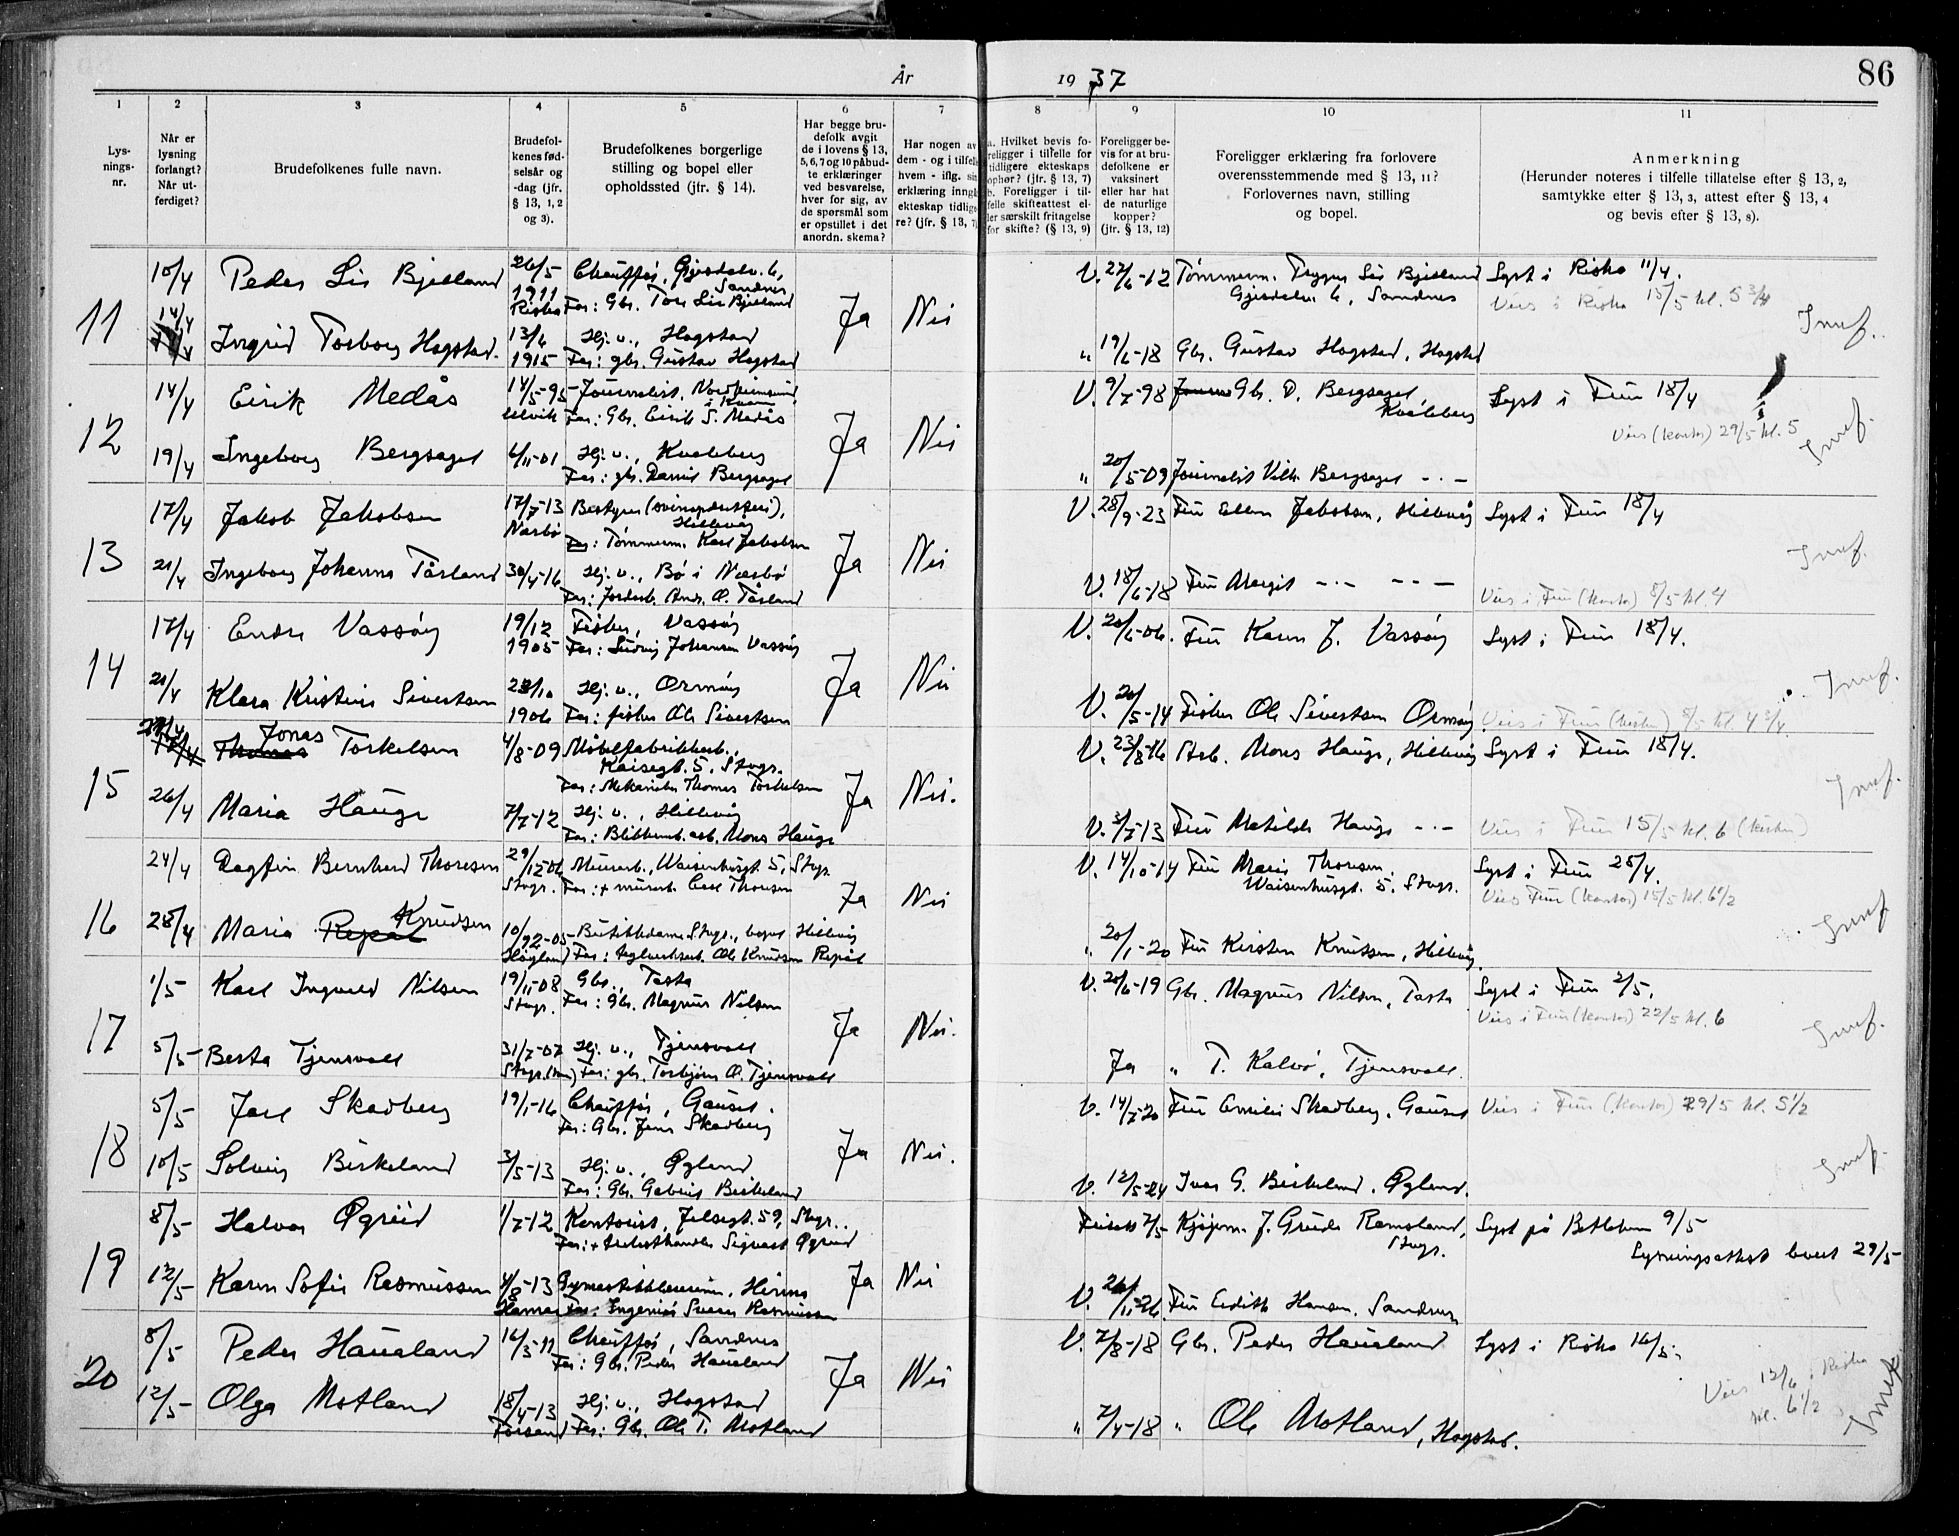 86
År 1937
1 2 3 4 5 6 7 8 9 10 11
Lys-
nings-
nr.
Når er
lysning
forlangt?
Når ut-
ferdiget?
Brudefolkenes fulle navn.
Brudefol-
kenes fød-
selsår og
-dag (jfr.
§ 13, 1, 2
og 3).
Brudefolkenes borgerlige
stilling og bopel eller
opholdssted (jfr. § 14).
Har begge bru-
defolk avgit
de i lovens § 13,
5, 6, 7 og 10 påbud-
te erklæringer
ved besvarelse,
hver for sig, av
de spørsmål som
er opstillet i det
anordn. skema?
Har nogen av
dem - og i tilfelle
hvem - iflg. sin
erklæring inngå
ekteskap tidlige
re? (jfr. § 13, 7)
a. Hvilket bevis fo-
religger i tilfelle for
tidligere ekteskaps
ophør? (jfr. § 13, 7)
b. Foreligger i til-
felle skifteattest el-
ler særskilt fritagelse
for skifte? (§ 13, 9)
Foreligger be-
vis for at bru-
defolkene er
vaksinert
eller har hat
de naturlige
kopper?
(jfr. § 13, 12)
Foreligger erklæring fra forlovere
overensstemmende med § 13, 11?
Forlovernes navn, stilling
og bopel.
Anmerkning
(Herunder noteres i tilfelle tillatelse efter § 13, 2,
samtykke efter § 13, 3, attest efter § 13, 4
og bevis efter § 13, 8).
11 10/4 Peder Lis Bjelland 26/5 1911 Riska Chauffør, Gjesdalv. 6, Sandnes
Far: Gbr. Tore Lis Bjelland Ja Nei V. 22/6-12 Tømmerm. Trygve Lis Bjelland
Gjesdalv. 6, Sandnes Lyst i Riska 11/4.
Vies i Riska 15/5 kl. 5 3/4
14/4 Ingrid Torborg Hogstad. 13/4 1915 Hj. v., Hogstad
Far: gbr. Gustav Hogstad " 19/6-18 Gbr. Gustav Hogstad, Hogstad
12 14/4 Eirik Medås 14/5-95 Ulvik Journalist, Nordheimsund i Kvam
Far: Gbr. Eirik S. Medås Ja Nei V. 9/7-98 Gbr. D. Bergsagel, Kvaleberg Lyst i Frue 18/4
Vies (kontor) 29/5 kl. 5
19/4 Ingeborg Bergsagel 6/11-01 Hj. v., Kvaleberg
Far: gbr. Daniel Bergsagel " 20/5-09 Journalist Vilh. Bergsagel - . -
13 17/4 Jakob Jakobsen 17/7-13 Nærbø Bestyrer, Hillevåg
Far: Tømmerm. Karl Jakobsen Ja Nei V. 28/9-23 Fru Ellen Jakobsen, Hillevåg Lyst i Frue 18/4
21/4 Ingeborg Johanne Tårland 30/4-16 Hj. v., Bø i Nærbø
Far: Jordarb. Andr. O. Tårland V. 18/6-18 Fru Margit - . - - - - Vies i Frue (kontor) 8/5 kl. 4
14 17/4 Endre Vassøy 19/12 1905 Fisker, Vassøy
Far: Ludvig Johansen Vassøy Ja Nei V. 20/6-06. Fru Karen J. Vassøy Lyst i Frue 18/4.
21/4 Klara Kristine Sivertsen 23/10 1906 Hj. v., Ormøy
Far: fisker Ole Sivertsen V. 20/5-14 Fisker Ole Sivertsen Ormøy Vies i Frue (kirken) 8/5 kl. 4 3/4.
15 17/4 Thomas Jonas Torkelsen 4/8-09 Møbelfabrikkarb., Kaisegt. 5, Stvgr.
Far: Mekaniker Thomas Torkelsen Ja Nei. V. 23/8-16 Arb. Mons Hauge, Hillevåg Lyst i Frue 18/4.
26/4 Maria Hauge 7/7-12 Hj. v., Hillevåg
Far: Blikkemb. arb. Mons Hauge V. 3/7-13 Fru Matilde Hauge - . - Vies i Frue 15/5 kl. 6 (kirken)
16 24/4 Dagfin Bernhard Thoresen 29/12-06 Stvgr. Murerb., Waisenhusgt. 5, Stvgr.
Far: + murerb. Carl Thoresen Ja Nei V. 14/10-14 Fru Marie Thoresen, Waisenhusgt. 5. Stvgr. Lyst i Frue 25/4.
Vies Frue (kontor) 15/5 kl. 6 1/2
28/4 Maria Repål Knudsen Høgland Butikkdame Stvgr., bopel Hillevåg
Far: teglverksarb. Ole Knudsen Repål " 20/1-20 Fru Kirsten Knutsen, Hillevåg.
17 1/5 Karl Ingvald Nilsen 19/11-08 Stvgr. Gbr., Tasta
Far: Gbr. Magnus Nilsen Ja Nei. V. 20/6-19 Gbr. Magnus Nilsen, Tasta Lyst i Frue 2/5.
Vies i Frue (kontor) 22/5 kl. 6
5/5 Berta Tjensvoll 31/7-07 Hj. v., Tjensvoll
Far: gbr. Torbjørn O. Tjensvoll Ja " T. Kalvø, Tjensvoll.
18 5/5 Jarl Skadberg 19/1-16 Chauffør, Gausel.
Far: Gbr. Jens Skadberg Ja Nei. V. 14/7-20 Fru Emilie Skadberg, Gausel Vies i Frue (kontor) 29/5 kl. 5 1/2
10/5 Solveig Birkeland 3/5-13 Hj. v., Øgland
Far: Gbr. Gabriel Birkeland V. 12/5-24 Ivar G. Birkeland, Øgland.
19 8/5 Halvor Øgreid 1/7-12 Kontorist, Jelsagt. 59, Stvgr.
Far: + trelasthandler Sigvart Øgreid Ja Nei 7/5 Kjøpm. J. Grude Ramsland, Stvgr. Lyst på Betlehem 9/5
Lysningsattest levert 29/5
12/5 Karen Sofie Rasmussen 4/8-13 Hamar Hinna
Far: Ingeniør Svein Rasmussen V. 26/11-26 Fru Edith Hansen, Sandnes
20 8/5 Peder Haualand 16/3-11 Chauffør, Sandnes
Far: Gbr. Peder Haualand Ja Nei V. 7/8-18 Gbr. Peder Haualand Lyst i Riska 16/5.
Vies 12/6 i Riska
kl. 6 1/2
12/5 Olga Motland 18/4-13 Forsand Hj. v., Hogstad
Far: Gbr. Ole T. Motland " 7/4-18 " Ole Motland, Hogstad.